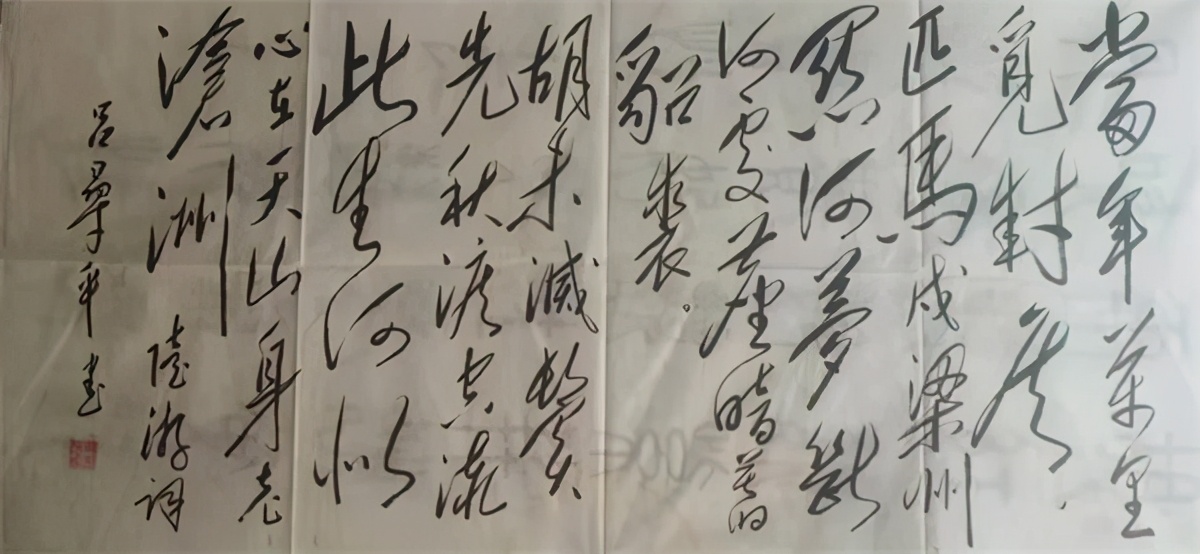 當年萬里
覓封侯
匹馬戍梁州
關河夢斷
何處塵暗舊
貂裘。
胡未滅鬢
先秋淚空流
此生何似
心在天山身老
滄洲 陸游詞
呂平書